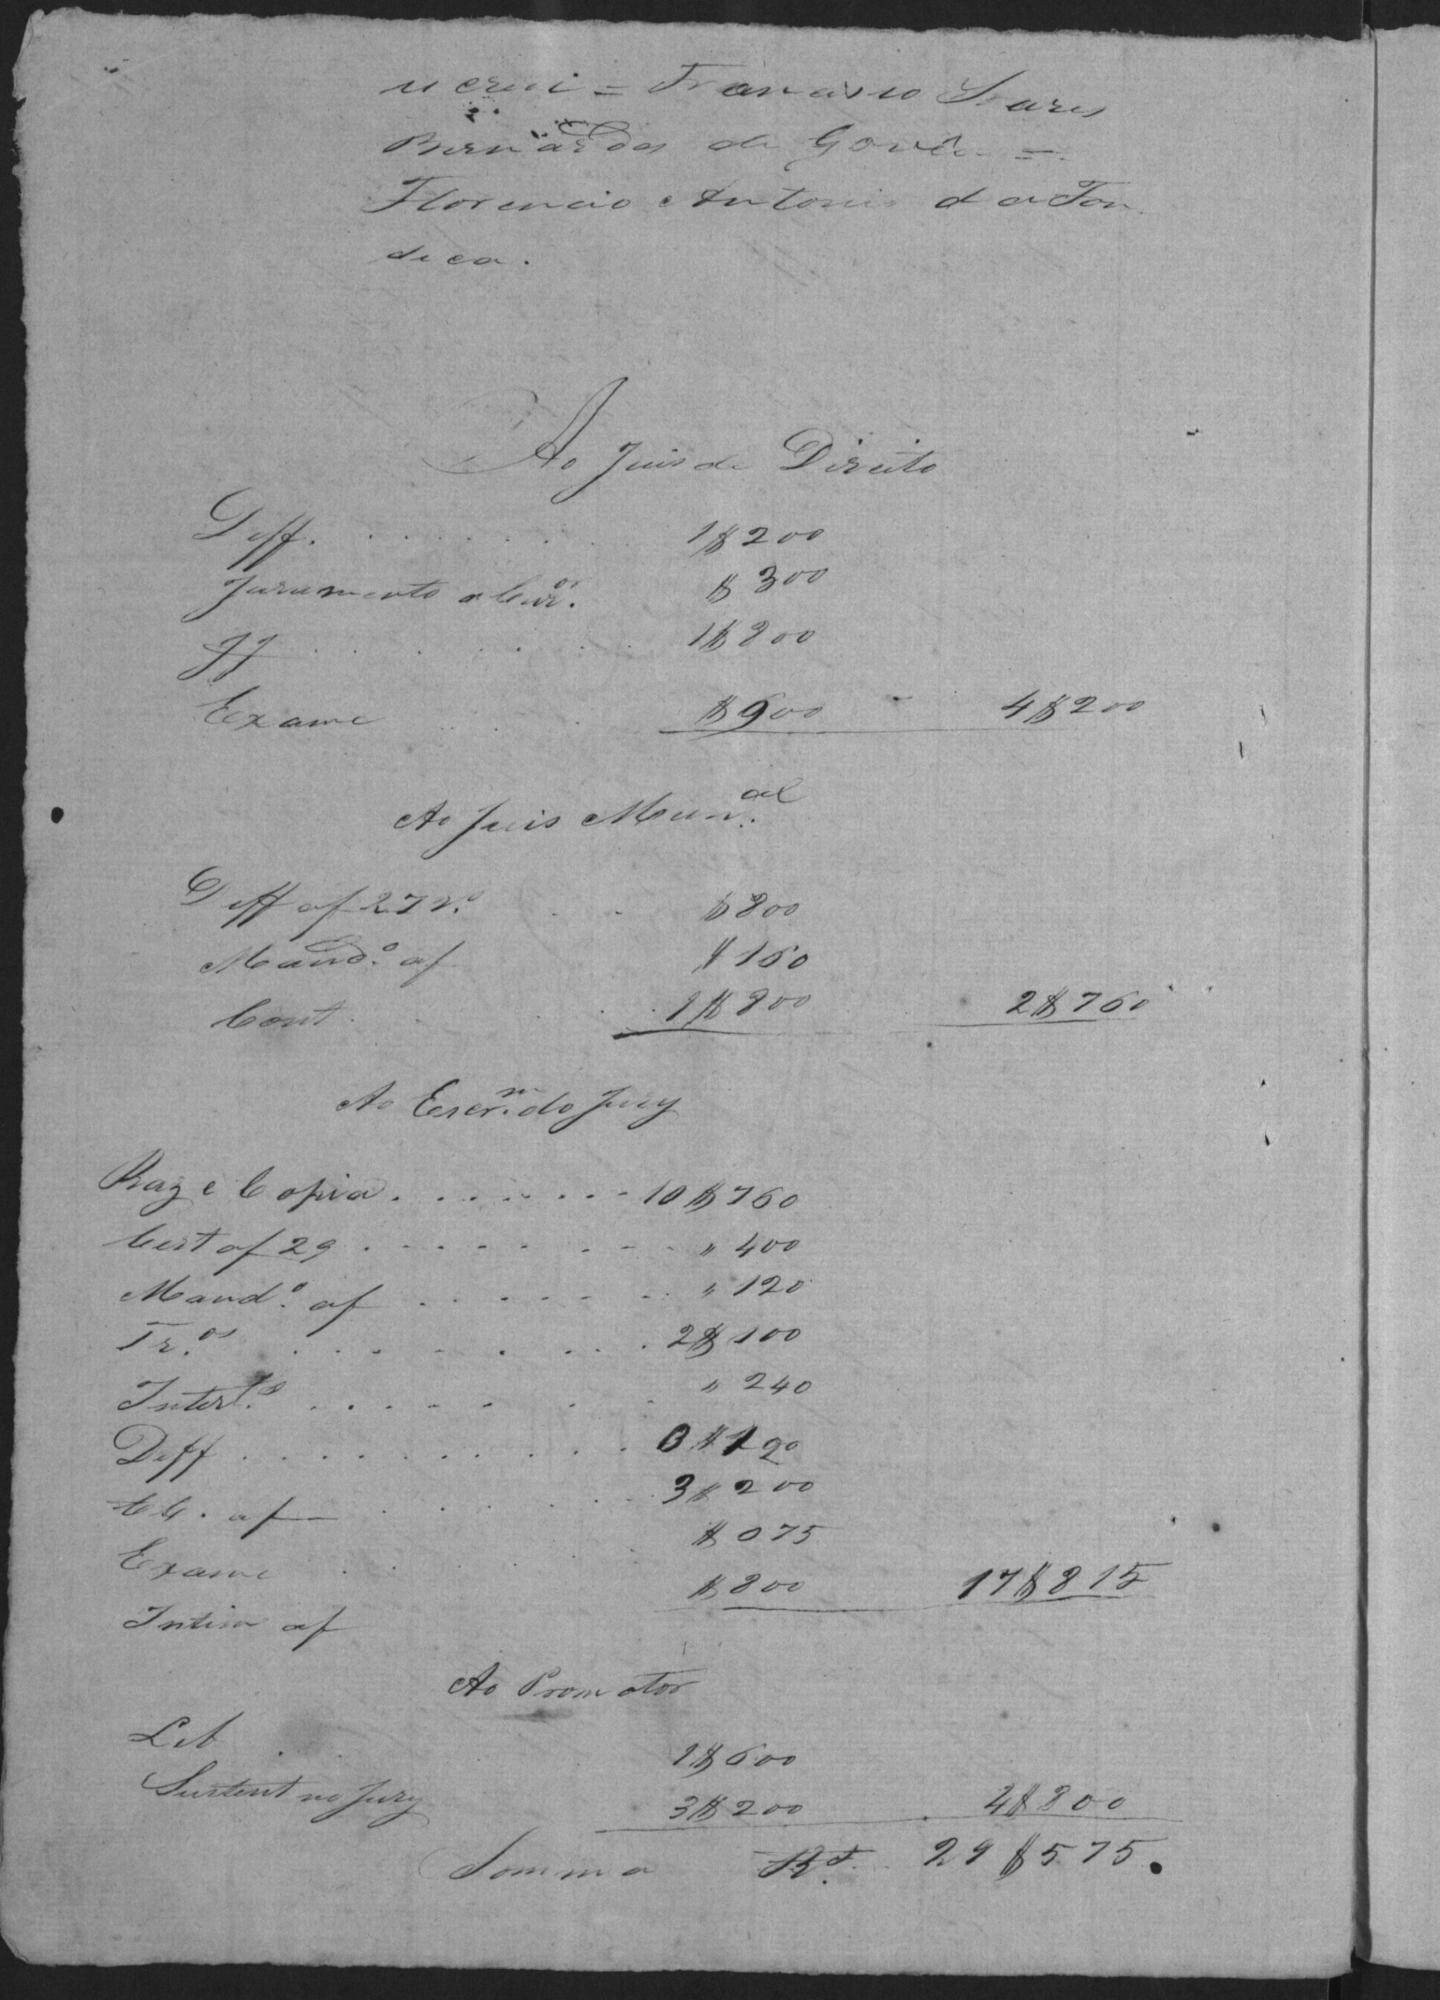 screvi = Francisco Soares
Bernardes de Gouvêa =
Florencio Antonio da Fon
seca.
Ao Juis de Direito
Deff. . . . . . . . 1$200
Juramento a Cur.or $300
JJ . . . . . . . 1$800
Exame . . . $900 - 4$200
Ao Juis Mun.al
Deff af 27 v.o . . $800
Mand.o af $160
Cont . . . . . 1$800 2$760
Ao Escr.m do Jury
Raz e Copia . . . . . . . 10$760
Cert af 29 . . . . . . . . " 400
Mand.o af . . . . . . . " 120
Tr.os . . . . . . . . 2$100
Intert.o . . . . . . . " 240
Deff . . . . . . . . . . 0$120
CC. af . . . . . . 3$200
Exame . . . . $075
Intim af $800 17$815
Ao Promotor
Lib . . 1$600
Sustent no Jury 3$200 . 4$800
Somma Rs. 29$575.